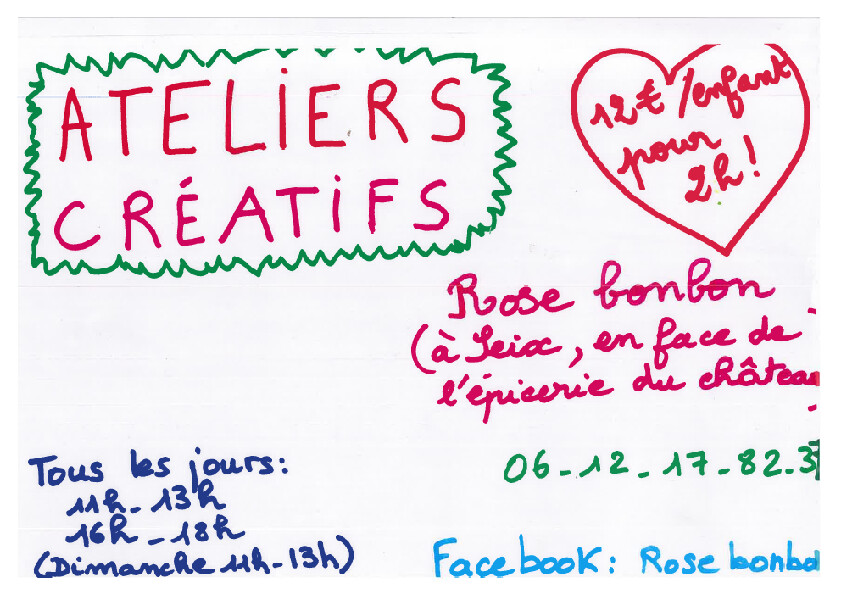 ATELIERS
CRÉATIFS
12€/enfant
pour
2h!
Rose bonbon
(à Seix, en face de
l'épicerie du château
Tous les jours:
11h-13h
16h-18h
(Dimanche 11h-13h)
06-12-17-82-3
Facebook: Rose bonbo